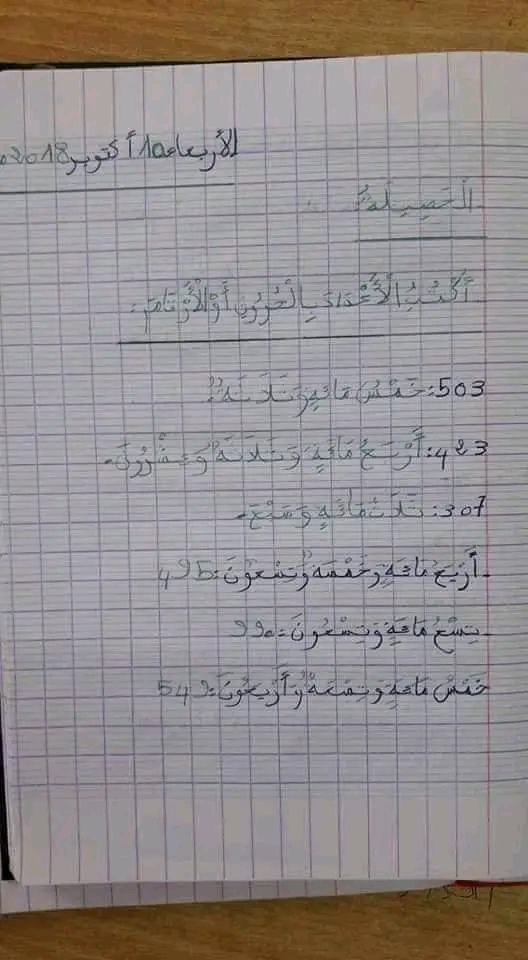 الأربعاء 10 أكتوبر 2018م
الْحَصِيلَةُ
أَكْتُبُ الْأَعْدَادَ بِالْحُرُوفِ أَوْ الْأَرْقَامِ:
503: خَمْسُ مَائَةٍ وَثَلَاثَةٌ.
423: أَرْبَعُ مَائَةٍ وَثَلَاثَةٌ وَعِشْرُونَ.
307: ثَلَاثُ مَائَةٍ وَسَبْعَ.
- أَرْبَعُ مَائَةٍ وَخَمْسَةٌ وَتِسْعُونَ: 495
- تِسْعُ مَائَةٍ وَتِسْعُونَ: 990
خَمْسُ مَائَةٍ وَتِسْعَةٌ وَأَرْبَعُونَ: 549